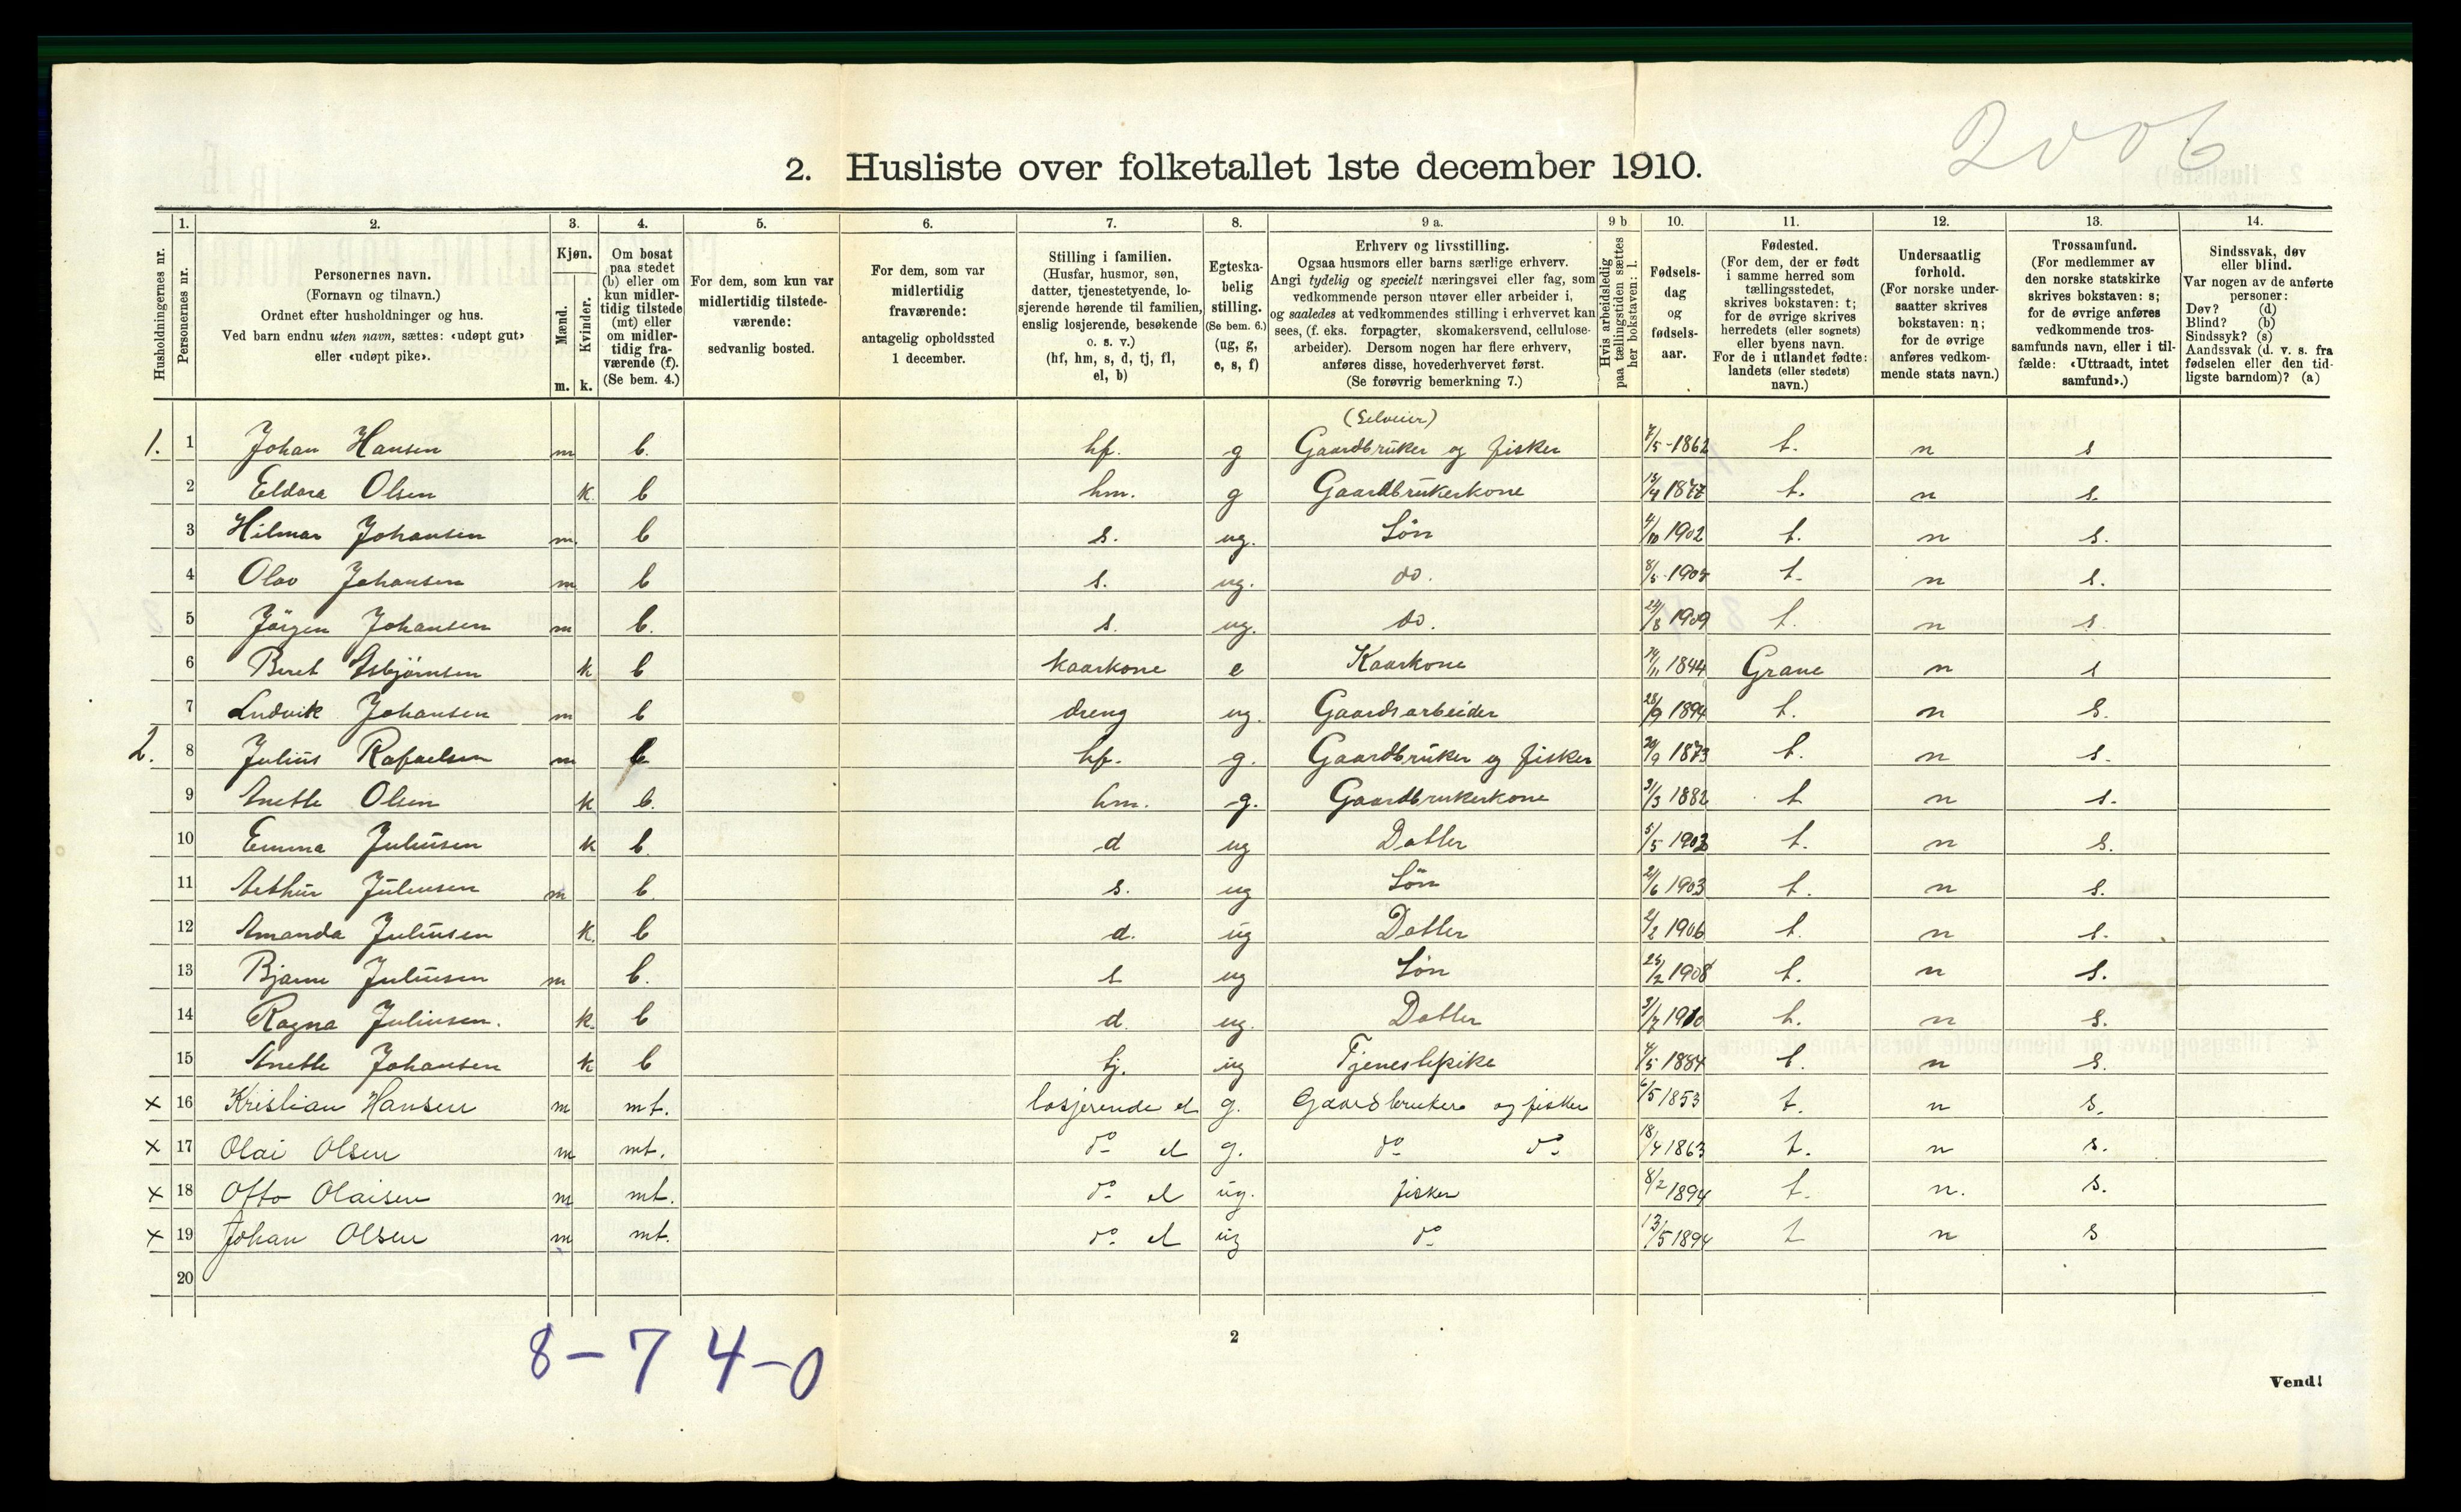 2006
2. Husliste over folketallet 1ste december 1910.
Husholdningernes nr.
1. Personernes nr.
2. Personernes navn. (Fornavn og tilnavn.) Ordnet efter husholdninger og hus. Ved barn endnu uten navn, sættes: «udøpt gut» eller «udøpt pike».
3. Kjøn. Mænd. m. Kvinder. k.
4. Om bosat paa stedet (b) eller om kun midlertidig tilstede (mt) eller om midlertidig fraværende (f). (Se bem. 4.)
5. For dem, som kun var midlertidig tilstedeværende: sedvanlig bosted.
6. For dem, som var midlertidig fraværende: antagelig opholdssted 1 december.
7. Stilling i familien. (Husfar, husmor, søn, datter, tjenestetyende, losjerende hørende til familien, enslig losjerende, besøkende o. s. v.) (hf, hm, s, d, tj, fl, el, b)
8. Egteskabelig stilling. (Se bem. 6.) (ug, g, e, s, f)
9 a. Erhverv og livsstilling. Ogsaa husmors eller barns særlige erhverv. Angi tydelig og specielt næringsvei eller fag, som vedkommende person utøver eller arbeider i, og saaledes at vedkommendes stilling i erhvervet kan sees, (f. eks. forpagter, skomakersvend, cellulosearbeider). Dersom nogen har flere erhverv, anføres disse, hovederhvervet først. (Se forøvrig bemerkning 7.)
9 b Hvis arbeidsledig paa tællingstiden sættes her bokstaven: l.
10. Fødselsdag og fødselsaar.
11. Fødested. (For dem, der er født i samme herred som tællingsstedet, skrives bokstaven: t; for de øvrige skrives herredets (eller sognets) eller byens navn. For de i utlandet fødte: landets (eller stedets) navn.)
12. Undersaatlig forhold. (For norske undersaatter skrives bokstaven: n; for de øvrige anføres vedkommende stats navn.)
13. Trossamfund. (For medlemmer av den norske statskirke skrives bokstaven: s; for de øvrige anføres vedkommende trossamfunds navn, eller i tilfælde: «Uttraadt, intet samfund».)
14. Sindssvak, døv eller blind. Var nogen av de anførte personer: Døv? (d) Blind? (b) Sindssyk? (s) Aandssvak (d. v. s. fra fødselen eller den tidligste barndom)? (a)
(Selveier)
1. 1 Johan Hansen m b. hf. g Gaardbruker og fisker 7/5-1862 t. n s
2 Eldora Olsen k. b hm. g Gaardbrukerkone 1877 t. n s.
3 Hilmar Johansen m. b s. ug. Sön 4/10 1902 t. n s.
4 Olav Johansen m b s. ug. do. 8/5-1905 t. n s.
5 Jörgen Johansen m b. s. ug. do. 1909 t. n s.
6 Beret Esbjørnsen k b kaarkone e Kaarkone 1844 Grane n s
7 Ludvik Johansen m b dreng ug. Gaardsarbeider 28/9 1894 t. n s.
2. 8 Julius Rafaelsen m b hf. g. Gaardbruker og fisker 1873 t. n s.
9 Anette Olsen k b. hm. g. Gaardbrukerkone 3/3 1882 t n s.
10 Emma Juliusen k b. d ug Datter 5/5 1902 t. n s.
11 Arthur Juliusen m b. s. ug Sön 1903 t. n s.
12 Amanda Juliusen k. b d. ug Datter 2/2 1906 t. n s.
13 Bjarne Juliusen m b. s ug Sön 1908 t. n s.
14 Ragna Juliusen. k. b d. ug. Datter 3/7 1910 t. n s.
15 Anette Johansen k b tj. ug Tjenestepike 4/5 1884 t. n s.
x 16 Kristian Hansen m mt. losjerende el g. Gaardbruker og fisker 6/5 1853 t. n s.
x 17 Olai Olsen m mt. do el g. do do 18/4 1863 t. n s.
x 18 Otto Olaisen m mt. do el ug. fisker 8/2 1894 t. n. s.
x 19 Johan Olsen m mt. do el ug do 13/5 1894 t n s
20
8-7 4-0
2
Vend!